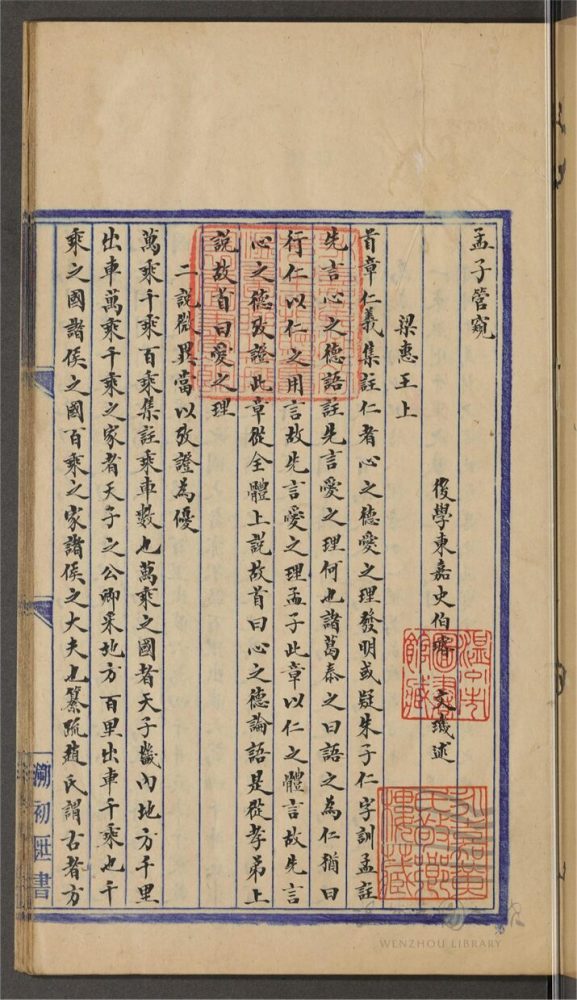 孟子管窺
後學東嘉史伯璿文璣述
梁惠王上
首章仁義集註仁者心之德愛之理發明或疑朱子仁字訓孟註
先言心之德語註先言愛之理何也諸葛泰之曰語之為仁猶曰
行仁以仁之用言故先言愛之理孟子此章以仁之體言故先言
心之德攷證此章從全體上說故首曰心之德論語是從孝弟上
說故首曰愛之理
二說微異當以攷證為優
萬乘千乘百乘集註乘車數也萬乘之國者天子畿內地方千里
出車萬乘千乘之家者天子之公卿采地方百里出車千乘也千
乘之國諸侯之國百乘之家諸侯之大夫也纂疏趙氏謂古者方
溯初匧書
溫州市圖書館藏
永嘉黃氏敬鄉樓藏
WENZHOU LIBRARY